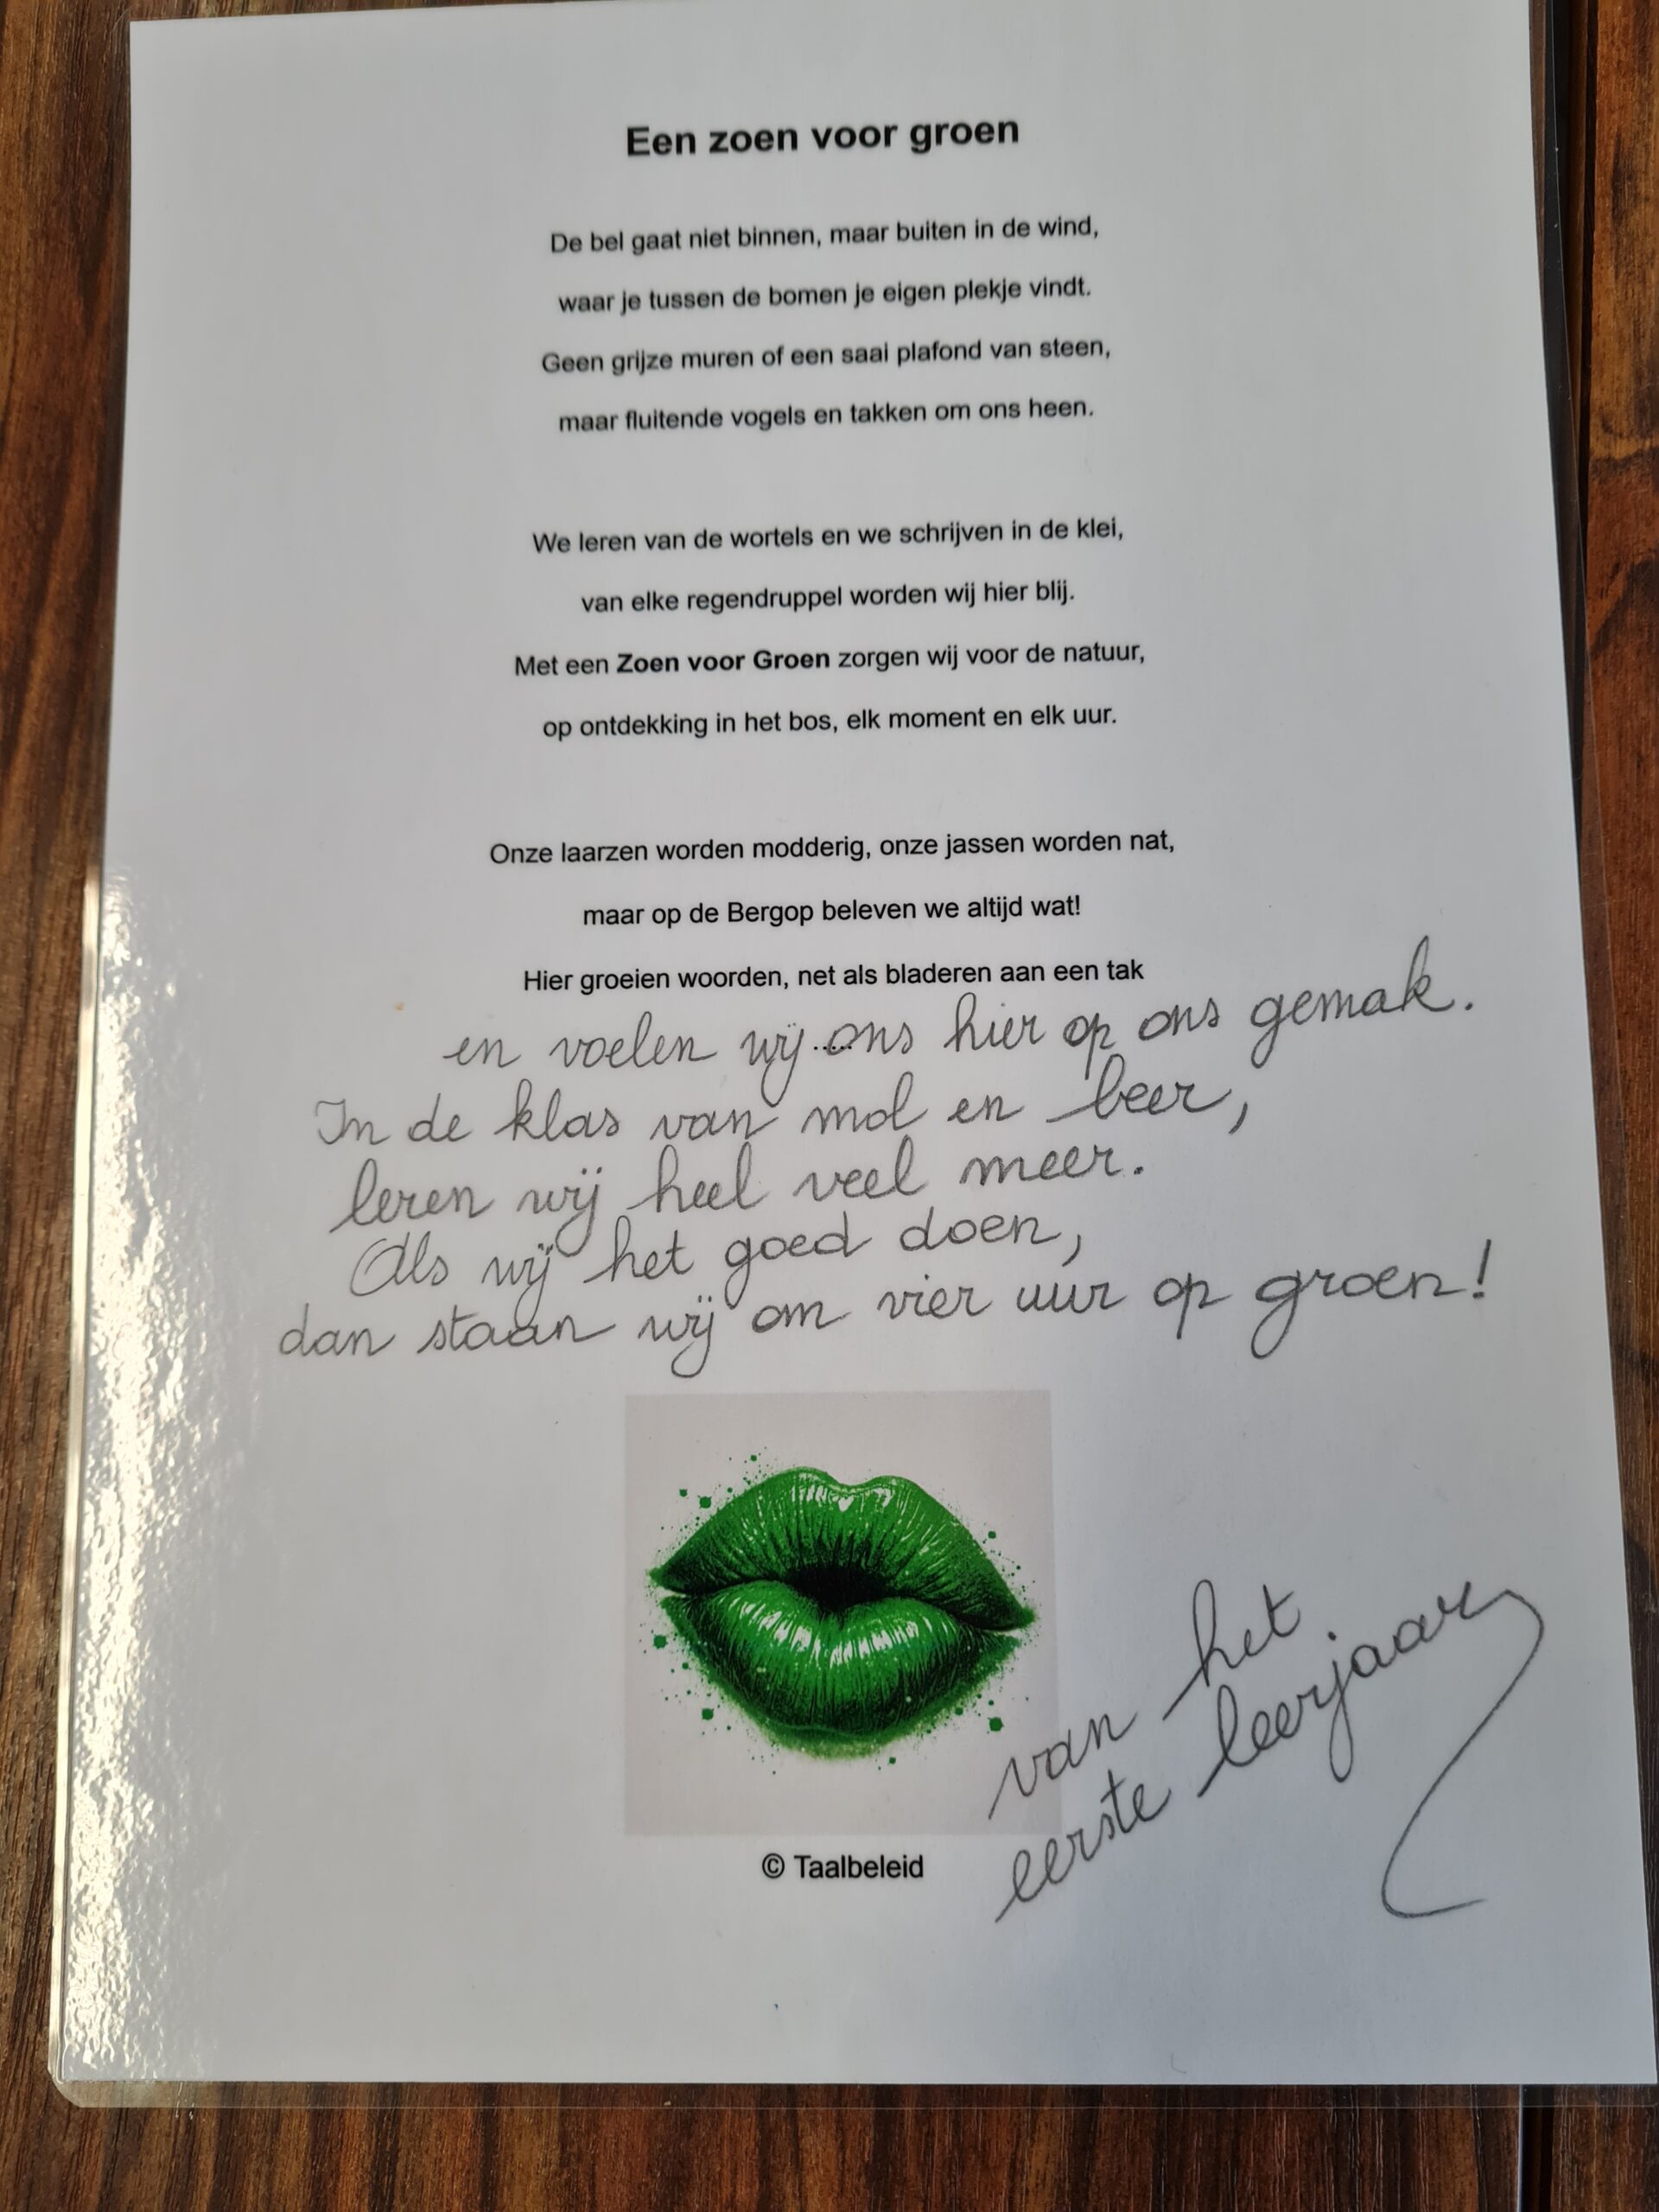 Een zoen voor groen
De bel gaat niet binnen, maar buiten in de wind,
waar je tussen de bomen je eigen plekje vindt.
Geen grijze muren of een saai plafond van steen,
maar fluitende vogels en takken om ons heen.
We leren van de wortels en we schrijven in de klei,
van elke regendruppel worden wij hier blij.
Met een Zoen voor Groen zorgen wij voor de natuur,
op ontdekking in het bos, elk moment en elk uur.
Onze laarzen worden modderig, onze jassen worden nat,
maar op de Bergop beleven we altijd wat!
Hier groeien woorden, net als bladeren aan een tak
en voelen wij ons hier op ons gemak.
In de klas van mol en beer,
leren wij heel veel meer.
Als wij het goed doen,
dan staan wij om vier uur op groen!
van het
eerste leerjaar
© Taalbeleid